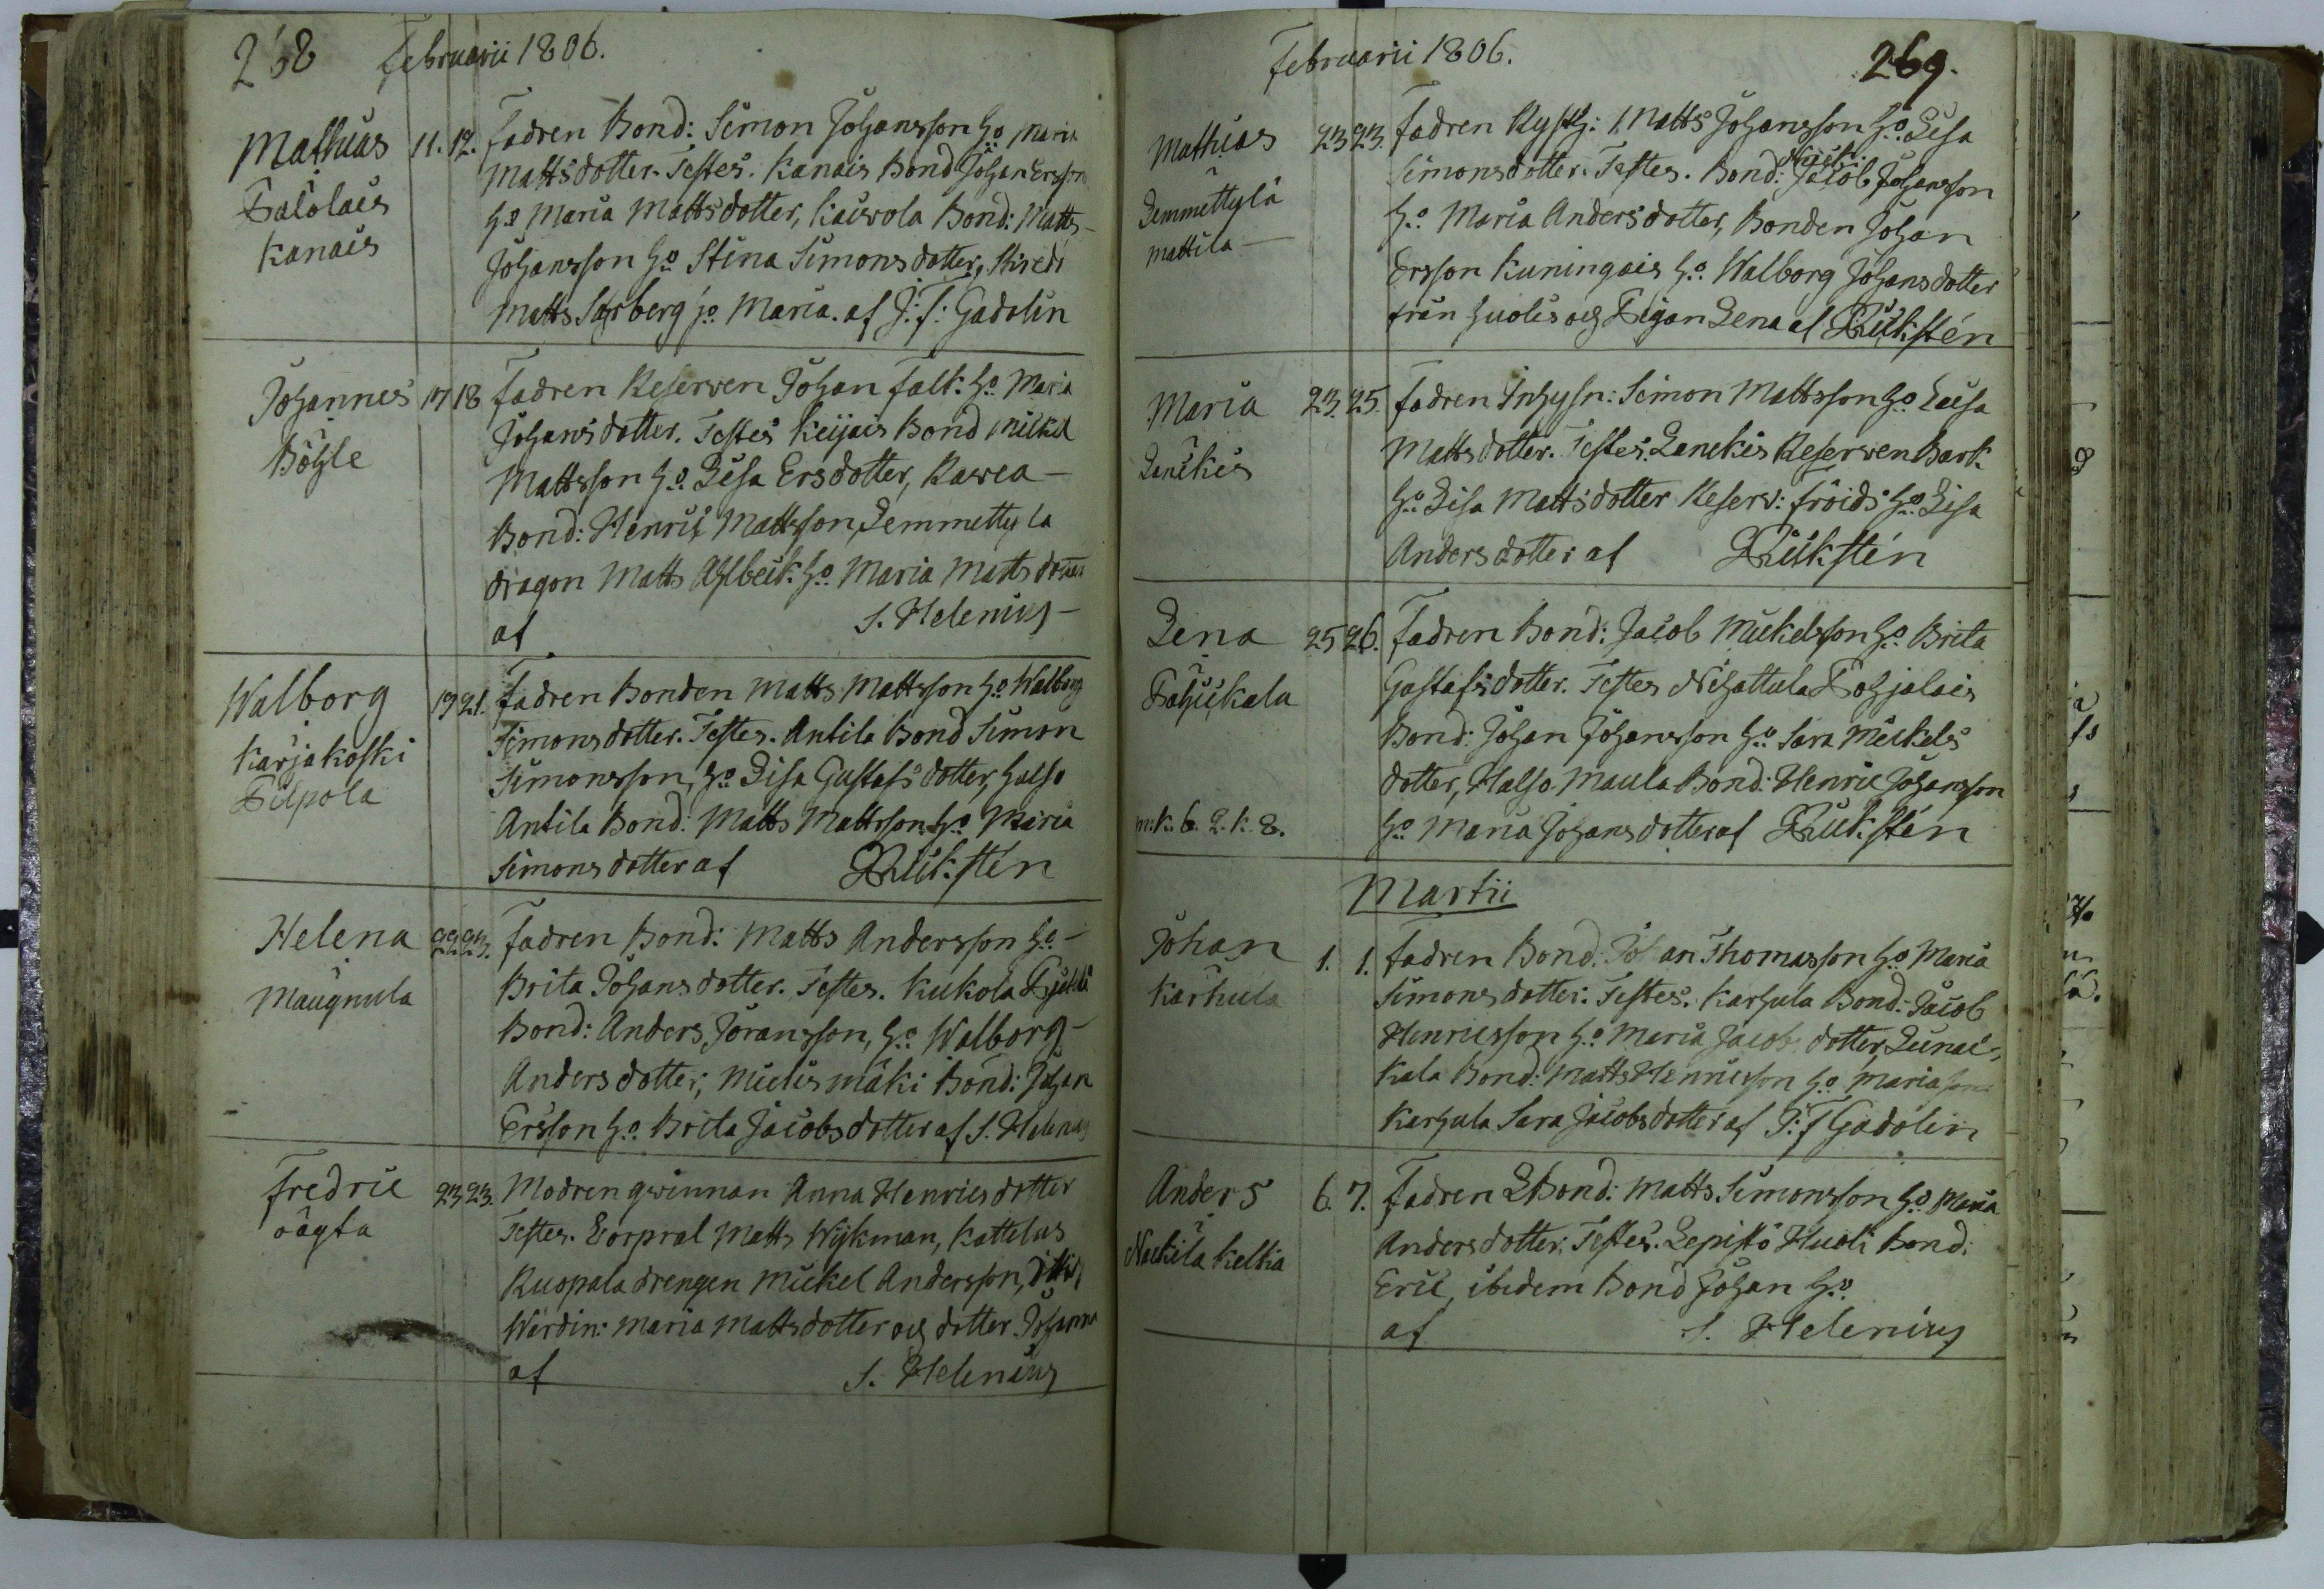 268 Februarii 1806.
Mathias 11. 12. Fadren Bond: Simon Johansson H:o Maria
Palolais Mattsdotter. Testes. Kanais Bond Johan Ersson
Kanais H:o Maria Mattsdotter, Kaivola Bond: Matts
Johansson H:o Stina Simonsdotter,
Matts Sarberg H:o Maria. af J: F: Gadolin
Johannes 17 18 Fadren Reserven Johan Falk: H:o Maria
Böhle Johansdotter. Testes Keijais Bond Mickel
Mattsson H:o Lisa Ersdotter, Ravea
Bond: Henric Mattsson, Lemmettyla
dragon Matts Ahlbeck H:o Maria Mattsdotter
af S. Helenius
Walborg 19 21. Fadren Bonden Matts Mattsson H:o Walborg
Karjakoski Simonsdotter. Testes. Antila Bond Simon
Pilpola Simonsson, H:o Lisa Gustafsdotter, Halso
Antila Bond: Matts Mattsson H:o Maria
Simonsdotter af Pricksten
Helena 22 23. Fadren Bond: Matts Andersson H:o
Maugnula Brita Johansdotter. Testes. Kukola
Bond: Anders Joransson, H:o Walborg
Andersdotter, Mielismäki Bond: Johan
Ersson H:o Brita Jacobsdotter af S. Helenius
Fredric 23 23. Modren qwinnan Anna Henricsdotter
oägta Testes. Corpral Matts Wijkman, Kattelus
Kuopala drengen Mickel Andersson,
Wärdin: Maria Mattsdotter och dotter Johanna
af S. Helenius
Februarii 1806. 269.
Mathias 23 23. Fadren Rysth: Matts Johansson H:o Lisa
Lemmettylä Simonsdotter. Testes. Bond: Jacob Johansson
Mattila H:o Maria Andersdotter, Bonden Johan
Ersson Kuningais H:o Walborg Johansdotter
från Huolis och Pigan Lena af Pricksten
Maria 23. 25. Fadren Inhysn: Simon Mattsson H:o Lisa
Lanekis Mattsdotter. Testes. Lanekis Reserven Bark.
H:o Lisa Mattsdotter Reserv: Fröids H:o Lisa
Andersdotter af Pricksten
Lena 25 26. Fadren Bond: Jacob Mickelsson H:o Brita
Pahickala Gustafsdotter. Testes Nihattula Pohjalais
Bond: Johan Johansson H:o Sara Mickels
dotter, Halso Maula Bond: Henric Johansson
m: k: 6. q. k: 8. H:o Maria Johansdotter af Pricksten
Martii
Johan 1. 1. Fadren Bond: Johan Thomasson H:o Maria
Karhula Simonsdotter. Testes. Karhula Bond: Jacob
Henricsson H:o Maria Jacobsdotter, Linai-
kala Bond: Matts Henricsson H:o Maria
Karhula Sara Jacobsdotter af J: F Gadolin
Anders 6. 7. Fadren Bond: Matts Simonsson H:o Maria
Nackila Kelkia Andersdotter. Testes. Lepistö Huoli Bond:
Eric, ibidem Bond Johan H:o
af S. Helenius